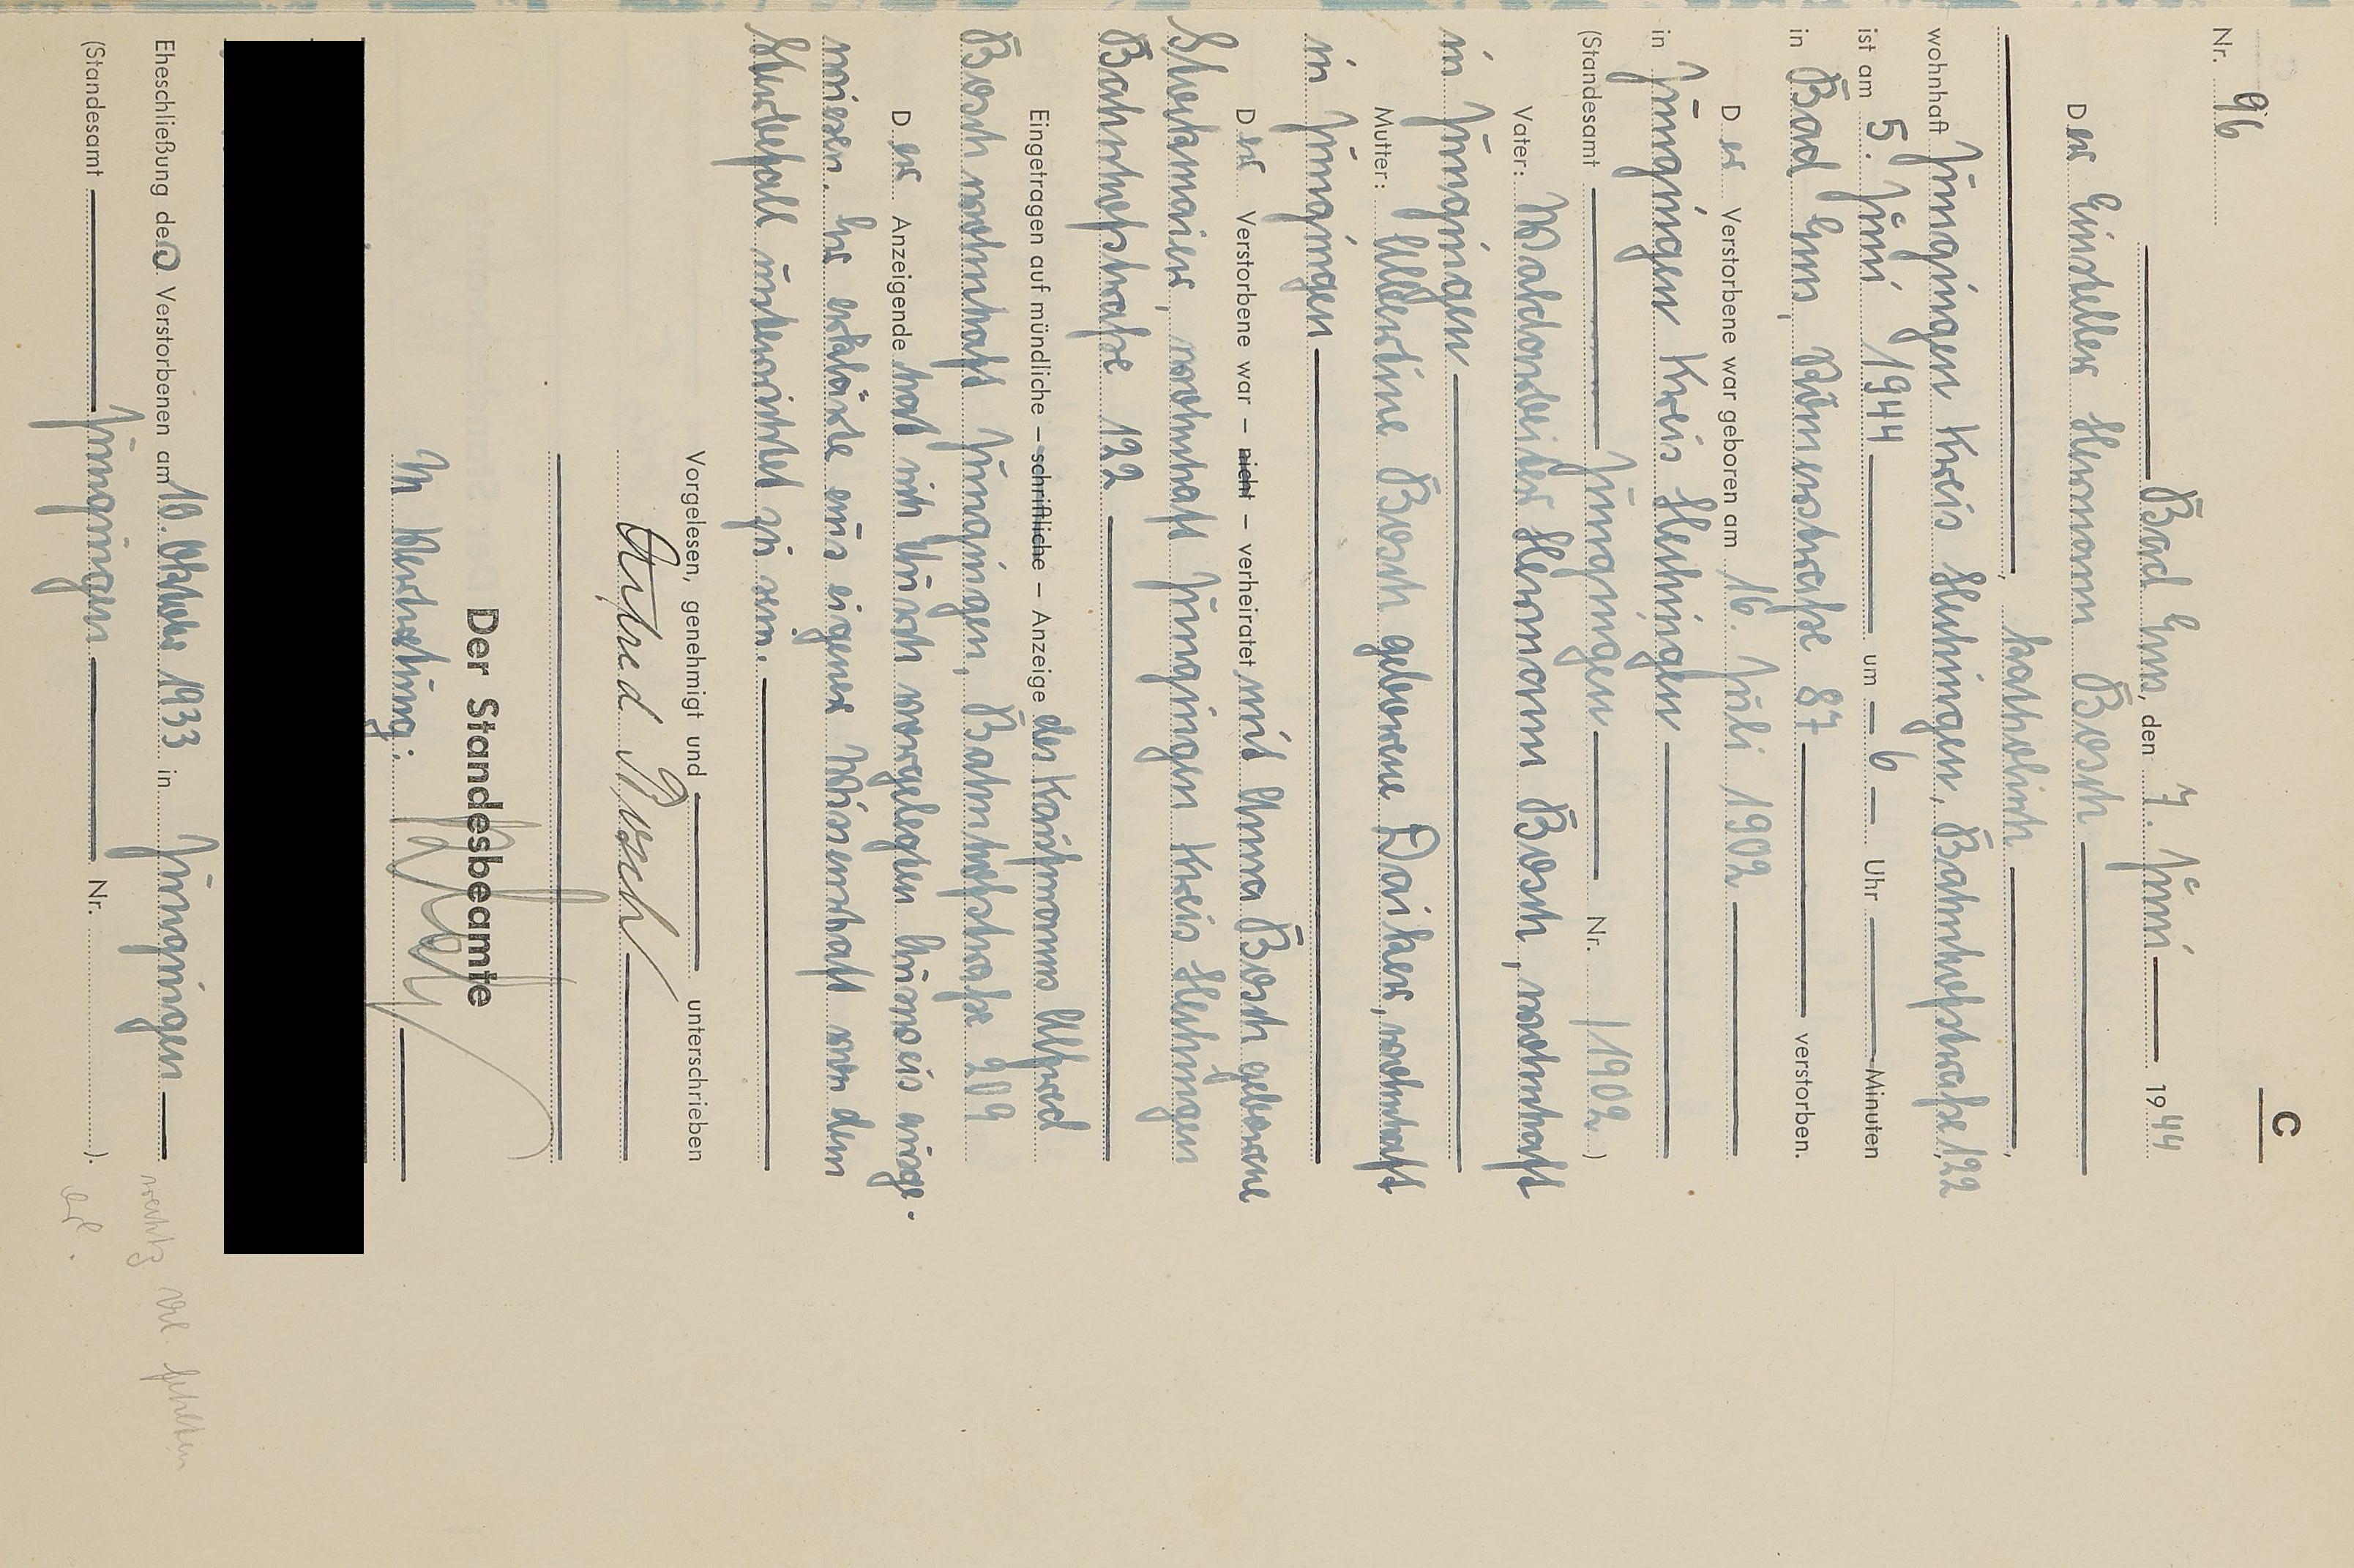 C
Nr. 96
Bad Ems, den 7. Juni 1944
Der Einsteller Hermann Bosch
katholisch
wohnhaft Jungingen Kreis Hechingen, Bahnhofstraße 122
ist am 5. Juni 1944 um 6 Uhr Minuten
in Bad Ems, Römerstraße 87 verstorben.
Der Verstorbene war geboren am 16. Juli 1902
in Jungingen Kreis Hechingen
(Standesamt Jungingen Nr. /1902)
Vater: Waldarbeiter Hermann Bosch, wohnhaft
in Jungingen
Mutter: Albertine Bosch geborene Daiker, wohnhaft
in Jungingen
Der Verstorbene war – nicht – verheiratet mit Anna Bosch geborene
wohnhaft Jungingen Kreis Hechingen
Bahnhofstraße 122
Eingetragen auf mündliche – schriftliche – Anzeige des Kaufmanns Alfred
Bosch wohnhaft Jungingen, Bahnhofstraße 209
Der Anzeigende hat sich durch vorgelegten Ausweis ausge-
wiesen. Er erklärte aus eigener Wissenschaft von dem
Sterbefall unterrichtet zu sein.
Vorgelesen, genehmigt und unterschrieben
Alfred Bosch
Der Standesbeamte
In Vertretung:
Eheschließung des Verstorbenen am 10. Oktober 1933 in Jungingen
(Standesamt Jungingen Nr. ).